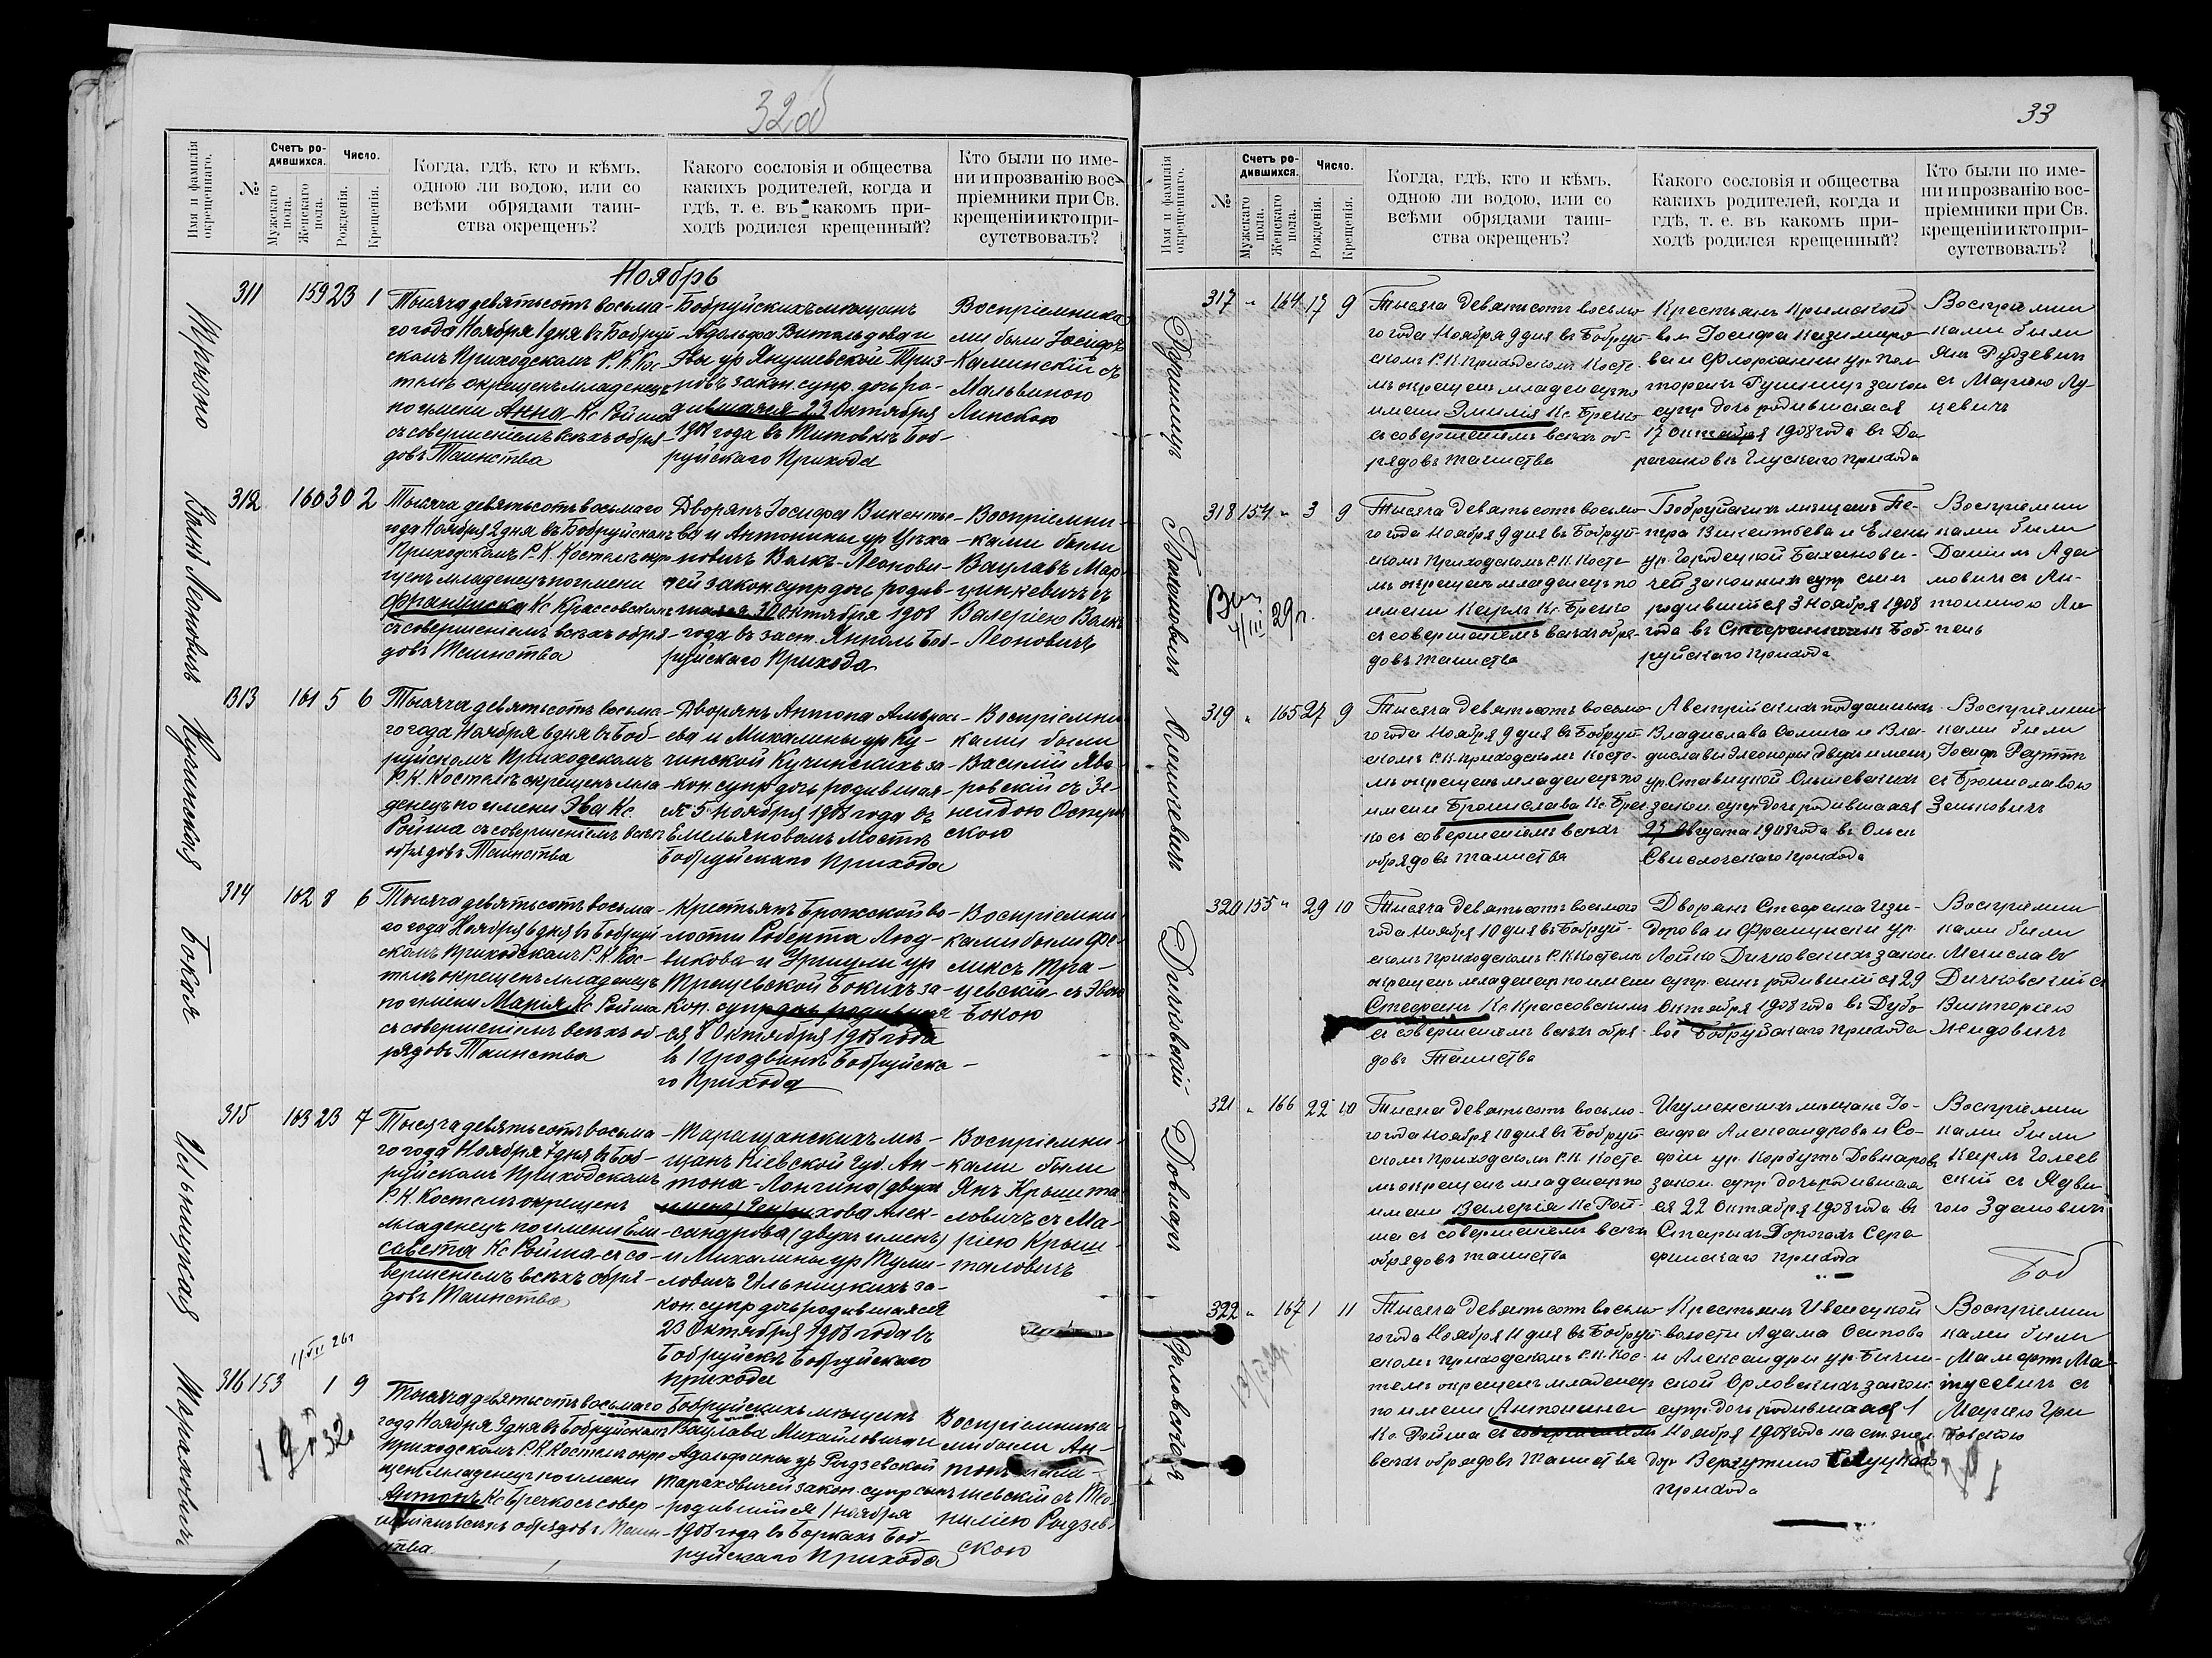 32об
Имя и фамилія окрещеннаго.
№
Счетъ родившихся.
Мужскаго пола.
Женскаго пола.
Число.
Рожденія.
Крещенія.
Когда, гдѣ, кто и кѣмъ,
одною ли водою, или со
всѣми обрядами таин-
ства окрещенъ?
Какого сословія и общества
какихъ родителей, когда и
гдѣ, т. е. въ какомъ при-
ходѣ родился крещенный?
Кто были по име-
ни и прозванію вос-
пріемники при Св.
крещеніи и кто при-
сутствовалъ?
Ноябрь
311 159 23 1
Тысяча девятьсотъ восьма-
го года Ноября 1 дня въ Бобруй-
скомъ Приходскомъ Р. К. Кос-
телѣ окрещенъ младенецъ
по имени Анна Кс Ройша
съ совершеніемъ всѣхъ обря-
довъ Таинства
Бобруйскихъ мѣщанъ
Адольфа Витольдова и
Эвы ур Янушевской
законъ. супр. дочь ро-
дившаяся 23 Октября
1908 года въ Титовкѣ Боб-
руйскаго Прихода
Воспріемника-
ми были Іосифъ
Калинскій съ
Мальвиною
Липскою
Волкъ Леоновичъ
312 160 30 2
Тысяча девятьсотъ восьмаго
года Ноября 2 дня въ Бобруйскомъ
Приходскомъ Р. К. Костелѣ окре-
щенъ младенецъ по имени
Франциска Кс Крассовскимъ
съ совершеніемъ всѣхъ обря-
довъ Таинства
Дворянъ Іосифа Викентье-
ва и Антонины ур Цѣха-
новичъ Волкъ-Леонови-
чей закон. супр дочь родив-
шаяся 30 Октября 1908
года въ заст. Янполь Боб-
руйскаго Прихода
Воспріемни-
ками были
Вацлавъ Мар-
цинкевичъ съ
Валеріею Волкъ
Леоновичъ
Кучинская
313 161 5 6
Тысяча девятьсотъ восьма-
го года Ноября 6 дня въ Боб-
руйскомъ Приходскомъ
Р. К. Костелѣ окрещенъ мла-
денецъ по имени Эва Кс.
Ройша съ совершеніемъ всѣхъ
обрядовъ Таинства
Дворянъ Антона Амврось-
ева и Михалины ур Ку-
чинской Кучинскихъ за-
кон. супр дочь родившая-
ся 5 Ноября 1908 года въ
Емельяновомъ Мостѣ
Бобруйскаго Прихода
Воспріемни-
ками были
Василій Яво-
ровскій съ Зе-
наидою Остров-
скою
Бокая
314 162 8 6
Тысяча девятьсотъ восьма-
го года Ноября 6 дня въ Бобруй-
скомъ Приходскомъ Р. К. Кос-
телѣ окрещенъ младенецъ
по имени Марія Кс Ройша
съ совершеніемъ всѣхъ об-
рядовъ Таинства
Крестьянъ Брожской во-
лости Роберта Люд-
викова и Уршули ур
Трацевской Бокихъ за-
кон. супр дочь родивша-
яся 8 Октября 1908 года
въ Бобруйска-
го Прихода
Воспріемни-
ками были Фе-
ликсъ Тра-
цевскій съ Эвою
Бокою
Ильницкая
315 163 23 7
Тысяча девятьсотъ восьма-
го года Ноября 7 дня въ Боб-
руйскомъ Приходскомъ
Р. К. Костелѣ окрещенъ
младенецъ по имени Ели-
савета Кс Ройша съ со-
вершеніемъ всѣхъ обря-
довъ Таинства
Таращанскихъ мѣ-
щанъ Кіевской Губ. Ан-
тона-Лонгина (двухъ
именъ) Генрихова Алек-
сандрова (двухъ именъ)
и Михалины ур Туми-
ловичъ Ильницкихъ за-
кон. супр дочь родившаяся
23 Октября 1908 года въ
Бобруйскѣ Бобруйскаго
прихода
Воспріемни-
ками были
Янъ Крышта-
ловичъ съ Ма-
ріею Крыш-
таловичъ
Тарахковичъ
11/VII 26г
316 153 1 9
Тысяча девятьсотъ восьмаго
года Ноября 9 дня въ Бобруйскомъ
приходскомъ Р. К. Костелѣ окре-
щенъ младенецъ по имени
Антонъ Кс Бречко съ совер-
шеніемъ всѣхъ обрядовъ Таин-
ства.
Бобруйскихъ мѣщанъ
Вацлава Михайловича и
Адольфины ур Рыдзевской
Тараховичей закон. супр сынъ
родившійся 1 Ноября
1908 года въ Боркахъ Боб-
руйскаго Прихода
Воспріемника-
ми были Ан-
тонъ
шевскій съ Тео-
филіею Рыдзев-
скою
33
Имя и фамилія окрещеннаго.
№
Счетъ родившихся.
Мужскаго пола.
Женскаго пола.
Число.
Рожденія.
Крещенія.
Когда, гдѣ, кто и кѣмъ,
одною ли водою, или со
всѣми обрядами таин-
ства окрещенъ?
Какого сословія и общества
какихъ родителей, когда и
гдѣ, т. е. въ какомъ при-
ходѣ родился крещенный?
Кто были по име-
ни и прозванію вос-
пріемники при Св.
крещеніи и кто при-
сутствовалъ?
317 " 164 17 9
Тысяча девятьсотъ восьмо-
го года Ноября 9 дня въ Бобруй-
скомъ Р. К. Приходскомъ Косте-
лѣ окрещенъ младенецъ по
имени Эмилія Кс. Бречко
съ совершеніемъ всѣхъ об-
рядовъ таинства
Крестьянъ Крымской
вол. Іосифа Казимиро-
ва и Флоркалины ур.
закон
супр. дочь родившаяся
17 Октября 1908 года въ Да-
расановѣ Глускаго прихода
Воспріемни
ками были
Янъ Рудзевичъ
съ Маріею Лу-
цевичъ
318 154 " 3 9
Тысяча девятьсотъ восьмо-
го года Ноября 9 дня въ Бобруй-
скомъ Приходскомъ Р. К. Косте-
лѣ окрещенъ младенецъ по
имени Карлъ Кс. Бречко
съ совершеніемъ всѣхъ обря-
довъ таинства
Бобруйскихъ мѣщанъ Пе-
тра Викентьева и Елены
ур. Городецкой Баханови-
чей законныхъ супр сынъ
родившійся 3 Ноября 1908
года въ Боб-
руйскаго прихода
Воспріемни
ками были
Даніилъ Ада
мовичъ съ Ан-
тониною
4/III 29г.
319 " 165 27 9
Тысяча девятьсотъ восьмо-
го года Ноября 9 дня въ Бобруй-
скомъ Р. К. Приходскомъ Косте-
лѣ окрещенъ младенецъ по
имени Бронислава Кс. Бреч-
ко съ совершеніемъ всѣхъ
обрядовъ таинства
Австрійскихъ подданныхъ
Владислава Сомича и Вла-
диславы Элеоноры (двухъ именъ)
ур. Ставицкой
закон. супр. дочь родившаяся
27 Августа 1908 года въ Ольсы
Свислочскаго прихода
Воспріемни
ками были
Іосифъ
съ Брониславою
Зеньковичъ
Дичковскій
320 155 " 29 10
Тысяча девятьсотъ восьмого
года Ноября 10 дня въ Бобруй-
скомъ Приходскомъ Р. К. Костелѣ
окрещенъ младенецъ по имени
Стефанъ Кс Крассовскимъ
съ совершеніемъ всѣхъ обря-
довъ Таинства
Дворянъ Стефана Изи-
дорова и Франциски ур.
Лойко Дичковскихъ закон.
супр. сынъ родившійся 29
Октября 1908 года въ Дубо-
вое Бобруйскаго прихода
Воспріемни
ками были
Мечиславъ
Дичковскій съ
Викторіею
Жидовичъ
Довнаръ
321 " 166 22 10
Тысяча девятьсотъ восьмо-
го года Ноября 10 дня въ Бобруй-
скомъ Приходскомъ Р. К. Косте-
лѣ окрещенъ младенецъ по
имени Валерія Кс Рой-
ша съ совершеніемъ всѣхъ
обрядовъ таинства
Игуменскихъ мѣщанъ Іо-
сифа Александрова и Со-
фіи ур. Корбутъ Довнаровъ
закон. супр. дочь родившая
ся 22 Октября 1908 года въ
Старыхъ Дорогахъ Сера
финскаго прихода
Воспріемни
ками были
Карлъ
скій съ Ядви-
гою Здановичъ
Боб
Орловская
322 " 167 1 11
Тысяча девятьсотъ восьмо-
го года Ноября 11 дня въ Бобруй-
скомъ приходскомъ Р. К. Кос-
телѣ окрещенъ младенецъ
по имени Антонина
Кс. Ройша съ совершеніемъ
всѣхъ обрядовъ Таинства
Крестьянъ Ивенецкой
волости Адама Осипова
и Александры ур.
Орловскихъ закон.
супр. дочь родившаяся 1
Ноября 1908 года на ст. жел.
дор. Верхутино Слуцкаго
прихода
Воспріемни
ками были
Мамертъ Ма-
тусевичъ съ
Маріею